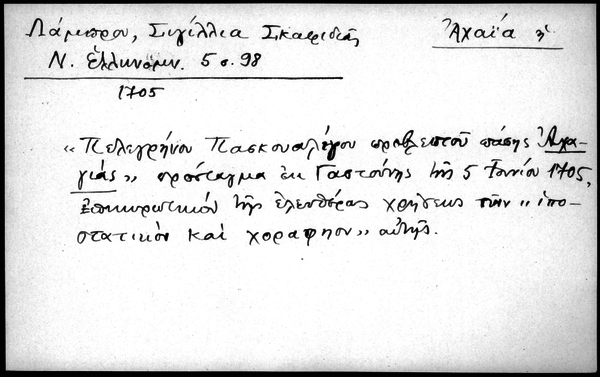 Λάμπρου, Σιγίλλια Σκαφιδιᾶς
Ἀχαΐα
Ν. Ἑλληνομν. 5 σ. 98
1705
"Πελεγρήνου Πασκουαλίγου προβλεπτοῦ πάσης Ἀχα-
γιᾶς», πρόσταγμα ἐκ Γαστούνης τῆς 5 Ἰουνίου 1705,
ἐπικυρωτικόν τῆς ἐλευθέρας χρήσεως τῶν "ὑπο-
στατικῶν καὶ χοραφηον» αὐτῆς.